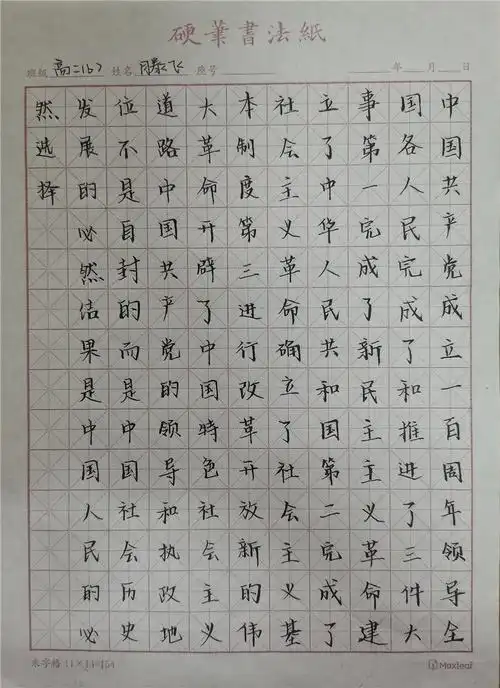 硬筆書法紙
班级 高二(6) 姓名 滕飞 座号 年 月 日
中国共产党成立一百周年领导全
国各人民完成了和推进了三件大
事第一完成了新民主主义革命建
立了中华人民共和国第二完成了
社会主义革命确立了社会主义基
本制度第三进行改革开放新的伟
大革命开辟了中国特色社会主义
道路中国共产党的领导和执政地
位不是自封的而是中国社会历史
发展的必然结果是中国人民的必
然选择
米字格 11×14=154
Maxleaf